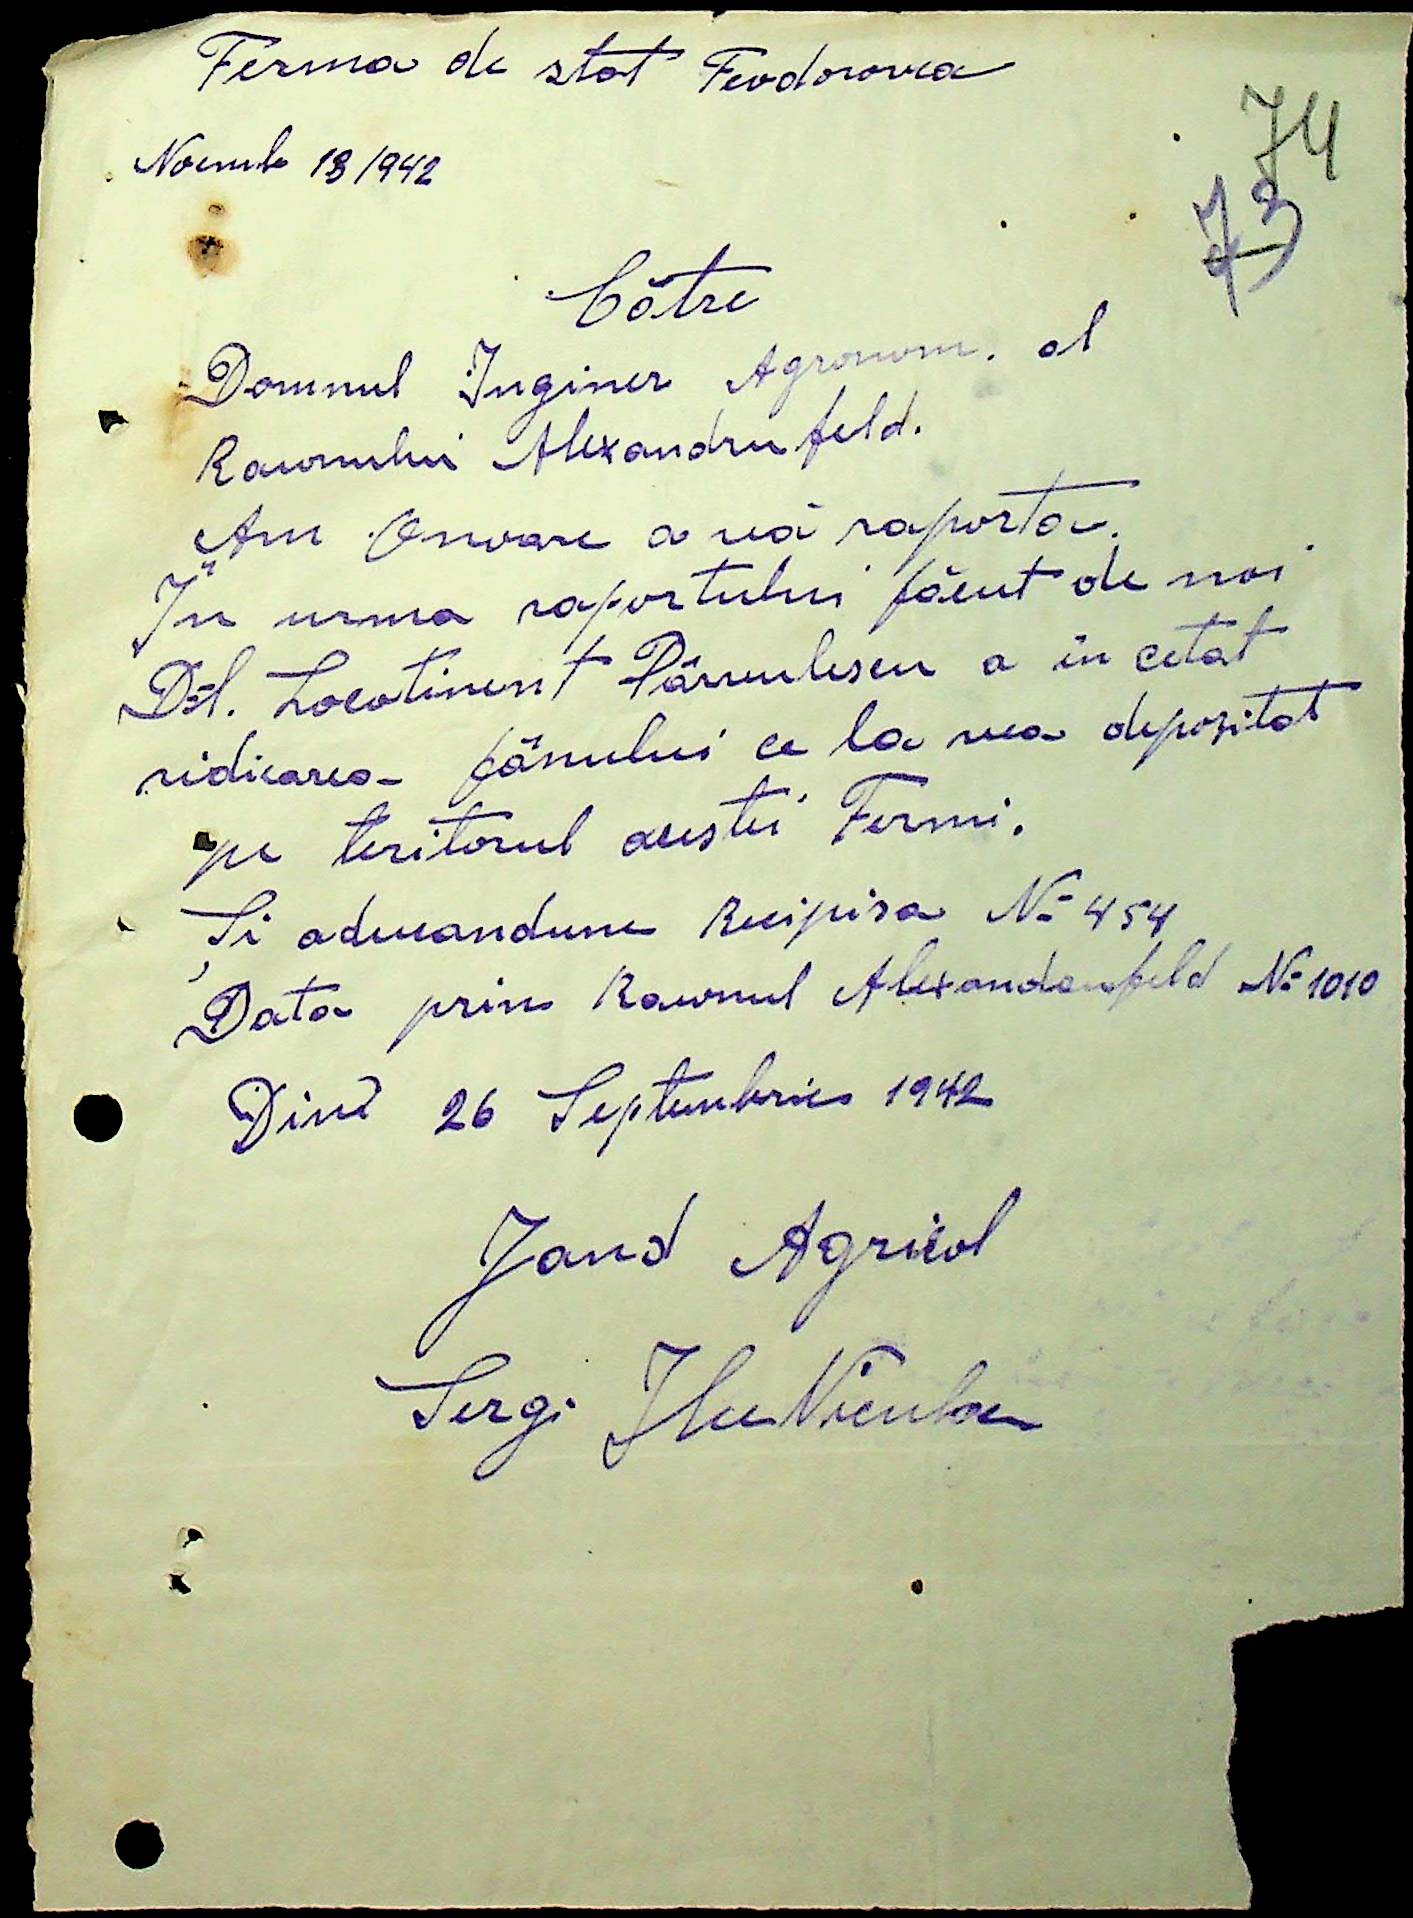 Ferma de stat Feodorovca
74
Noemb 13/942
73
Către
Domnul Inginer Agronom. al
Raionului Alexandrufeld.
Am Onoare a vă raporta.
În urma raportului făcut de noi
D-l. Locotinent Pârvulescu a în cetat
ridicarea fânului ce la vea depozitat
pe teritorul acestei Fermi.
Și aducandune Recipisa No 454
Data prin Raionul Alexandrufeld No 1010
Din 26 Septembrie 1942
Jand Agricol
Serg. Ilie Niculae